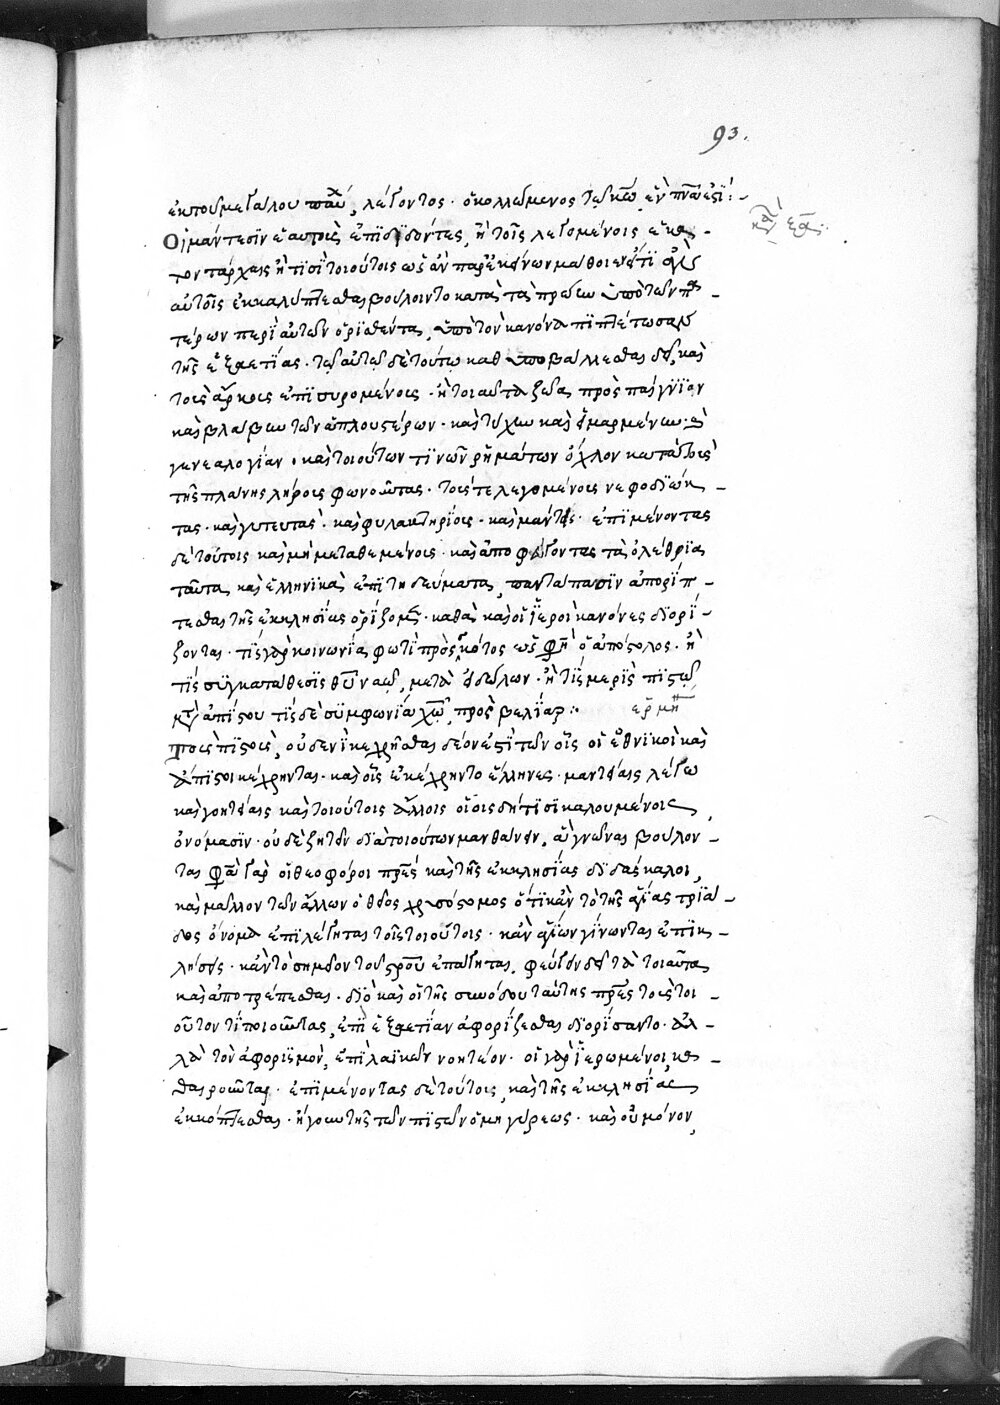 93.
ἐκ τοῦ μεγάλου παύλου, λέγοντος· ὁ κολλώμενος τῷ κυρίῳ ἓν πνεῦμά ἐστι:-
κανὼν ξα:
Οἱ μάντεσιν ἑαυτοὺς ἐπιδιδόντες, ἢ τοῖς λεγομένοις ἑκα-
τοντάρχαις ἤ τισι τοιούτοις ὡς ἂν παρ' ἐκείνων μάθοιεν
αὐτοῖς ἐκκαλύπτεσθαι βούλοιντο κατὰ τὰ πρώην ὑπὸ τῶν πα-
τέρων περὶ αὐτῶν ὁρισθέντα, ὑπὸ τὸν κανόνα πιπτέτωσαν
τῆς ἑξαετίας· τῷ αὐτῷ δὲ τούτῳ καθυποβάλλεσθαι δεῖ, καὶ
τοὺς ἄρκους ἐπισυρομένους· ἢ τοιαῦτα ζῶα πρὸς παίγνιον
καὶ βλάβην τῶν ἁπλουστέρων· καὶ τύχην καὶ εἱμαρμένην καὶ
γενεαλογίαν· καὶ τοιούτων τινῶν ῥημάτων ὄχλον κατὰ τοὺς
τῆς πλάνης λήρους φωνοῦντας· τούς τε λεγομένους νεφοδιώκ-
τας· καὶ γητευτάς· καὶ φυλακτηρίους· καὶ μάντεις· ἐπιμένοντας
δὲ τούτοις καὶ μὴ μεταθεμένους· καὶ ἀποφεύγοντας τὰ ὀλέθρια
ταῦτα καὶ ἑλληνικὰ ἐπιτηδεύματα, παντάπασιν ἀπορίπ-
τεσθαι τῆς ἐκκλησίας ὁρίζομεν· καθὰ καὶ οἱ ἱεροὶ κανόνες διορί-
ζονται· τίς γὰρ κοινωνία φωτὶ πρὸς σκότος ὥς φησιν ὁ ἀπόστολος· ἢ
τίς συγκατάθεσις θεοῦ ναῷ, μετὰ εἰδώλων· ἢ τίς μερὶς πιστῷ
μετὰ ἀπίστου τίς δὲ συμφωνία χριστῷ πρὸς βελίαρ:· ἑρμηνεία
Τοὺς πιστοὺς, οὐδενὶ κεχρῆσθαι δέον ἐστὶ τῶν οἷς οἱ ἐθνικοὶ καὶ
ἄπιστοι κέχρηνται· καὶ οἷς ἐκέχρηντο ἕλληνες· μαντείαις λέγω
καὶ γοητείαις καὶ τοιούτοις ἄλλοις οἵοις δή τισι καλουμένοις
ὀνόμασιν· οὐδὲ ζητεῖν διὰ τοιούτων μανθάνειν, ἃ γνῶναι βούλον-
ται φασὶ γὰρ οἱ θεοφόροι πατέρες καὶ τῆς ἐκκλησίας διδάσκαλοι,
καὶ μᾶλλον τῶν ἄλλων ὁ θεῖος χρυσόστομος ὅτι κἂν τὸ τῆς ἁγίας τριά-
δος ὄνομα ἐπιλέγηται τοῖς τοιούτοις· κἂν ἁγίων γίνωνται ἐπικ-
λήσεις· κἂν τὸ σημεῖον τοῦ σταυροῦ ἐπάγηται, φεύγειν δεῖ τὰ τοιαῦτα
καὶ ἀποτρέπεσθαι· διὸ καὶ οἱ τῆς συνόδου ταύτης πατέρες τοὺς τοι-
οῦτόν τι ποιοῦντας, ἐπὶ ἑξαετίαν ἀφορίζεσθαι διορίσαντο· ἀλ-
λὰ τὸν ἀφορισμὸν, ἐπὶ λαϊκῶν νοητέον· οἱ γὰρ ἱερωμένοι, κα-
θαιροῦνται· ἐπιμένοντας δὲ τούτοις, καὶ τῆς ἐκκλησίας
ἐκκόπτεσθαι· ἤγουν τῆς τῶν πιστῶν ὁμηγύρεως· καὶ οὐ μόνον,